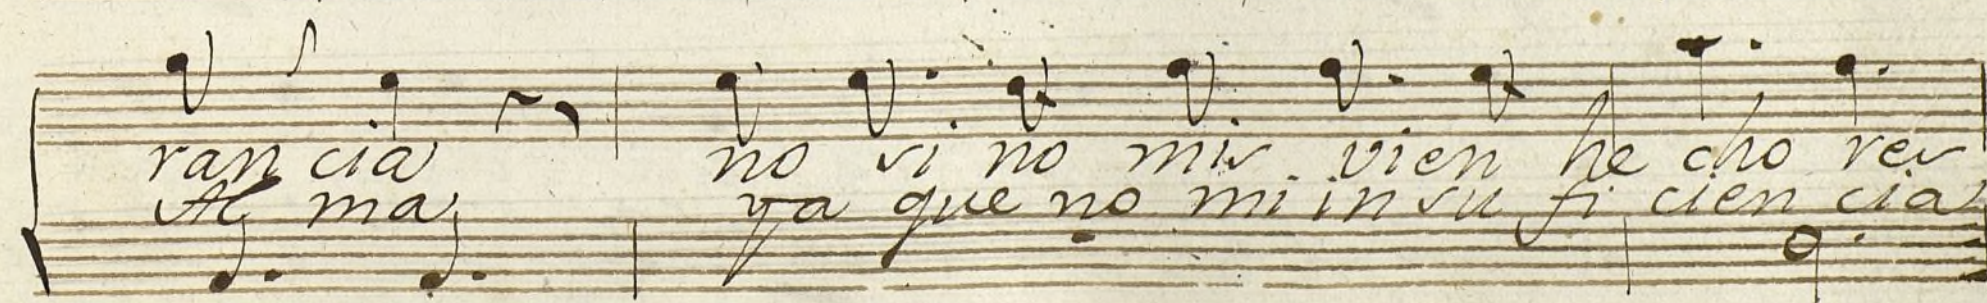 ran cia no si no mis vien he cho res
Al ma, ya que no mi in su fi cien cia